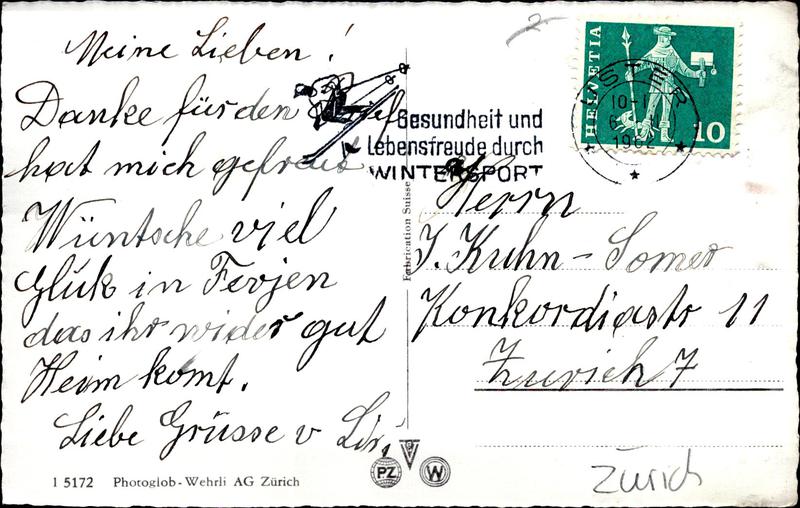 Meine Lieben!
Danke für den Brief
hat mich gefreut
Wüntsche viel
Glük in Ferjen
das ihr wider gut
Heim komt.
Liebe Grüsse v
1 5172 Photoglob-Wehrli AG Zürich
Fabrication Suisse
PZ
W
Gesundheit und
Lebensfreude durch
WINTERSPORT
HELVETIA
10
USTER
10-1
1962
Herrn
J. Kuhn-Somer
Konkordiastr 11
Zurich 7
Zürich